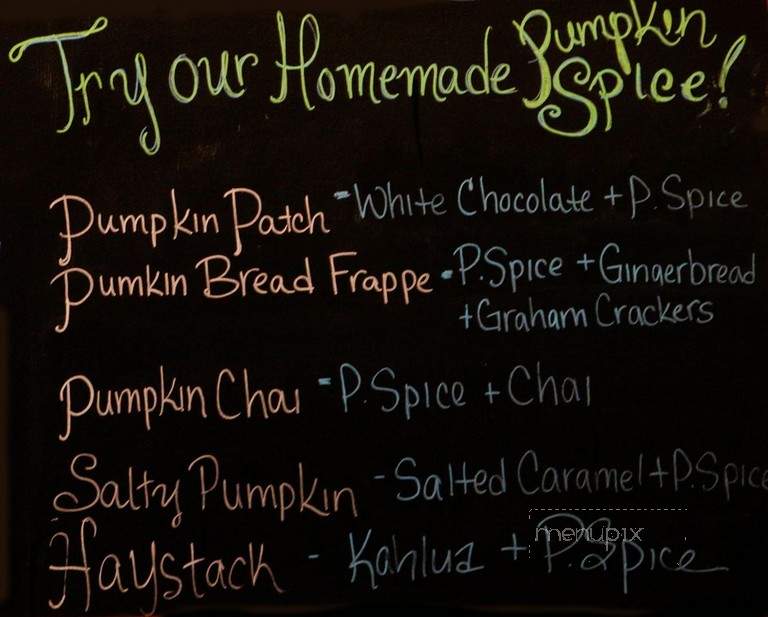 Try our Homemade Pumpkin Spice!
Pumpkin Patch - White Chocolate + P. Spice
Pumkin Bread Frappe - P. Spice + Gingerbread
+ Graham Crackers
Pumpkin Chai - P. Spice + Chai
Salty Pumpkin - Salted Caramel + P. Spice
Haystack - Kahlua + P. Spice
menupix